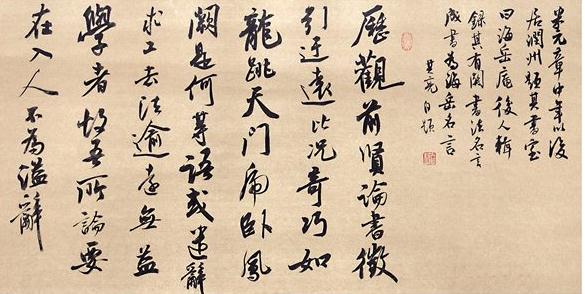 米元章中年以後
居潤州顏其書室
曰海岳庵後人輯
錄其有関書法名言
成書為海岳名言
歷觀前賢論書徵
引迂遠比況奇巧如
龍跳天門虎卧鳳
闕是何等語或遣辭
求工去法逾遠無益
學者故吾所論要
在入人不為溢辭